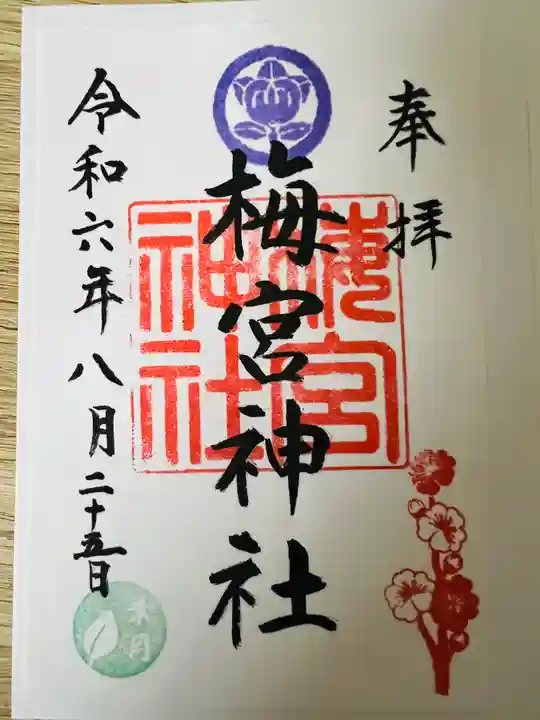 奉拝
梅宮神社
梅宮神社
令和六年八月二十五日